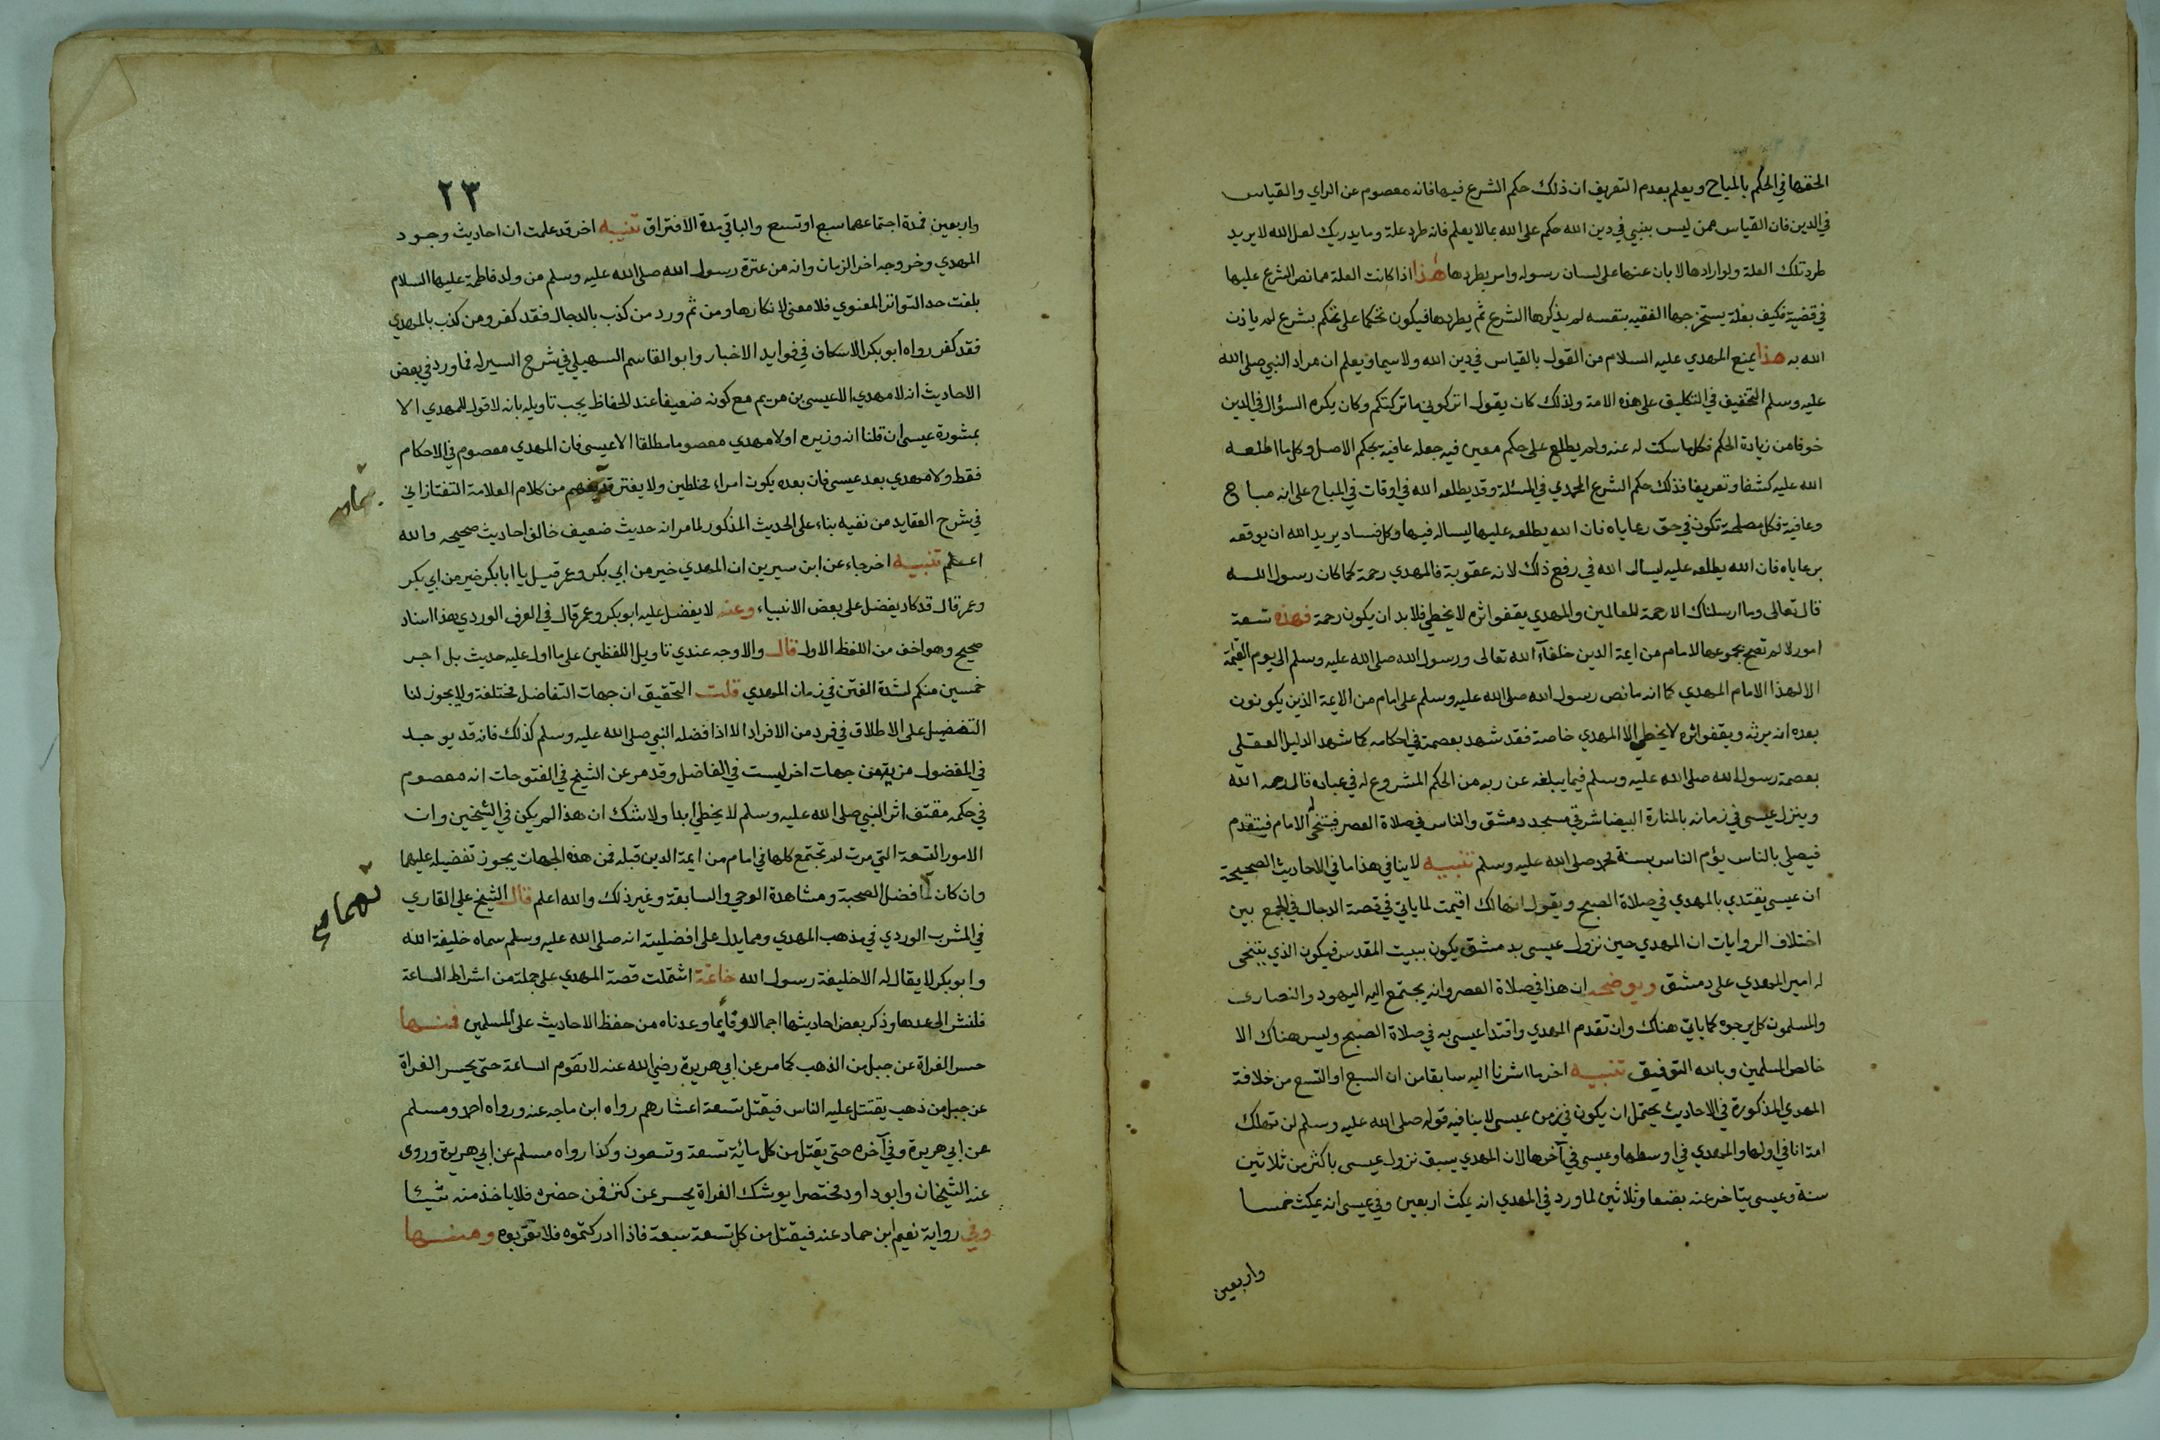 الحقها في الحكم بالمباح ويعلم بعدم التعريف ان ذلك حكم الشرع فيها فانه معصوم عن الراي والقياس
في الدين فان القياس ممن ليس بنبي في دين الله حكم على الله بما لا يعلم فانه طرد علة وما يدريك لعل الله لا يريد
طرد تلك العلة ولو ارادها لابان عنها على لسان رسوله وامر بطردها هذا اذا كانت العلة مما نص الشرع عليها
في قضية فكيف بعلة يستخرجها الفقيه بنفسه لم يذكرها الشرع ثم يطردها فيكون تحكما على تحكم بشرع لم ياذن
الله به هذا يمنع المهدي عليه السلام من القول بالقياس في دين الله ولا سيما ويعلم ان مراد النبي صلى الله
عليه وسلم التخفيف في التكليف على هذه الامة ولذلك كان يقول اتركوني ما تركتكم وكان يكره السؤال في الدين
خوفا من زيادة الحكم فكل ما سكت له عنه ولم يطلع على حكم معين فيه جعله عافية بحكم الاصل وكل ما اطلعه
الله عليه كشفا وتعريفا فذلك حكم الشرع المحمدي في المسئلة وقد يطلعه الله في اوقات في المباح على انه مباح
وعافية فكل مصلحة تكون في حق رعاياه فان الله يطلعه عليها ليساله فيها وكل فساد يريد الله ان يوقعه
برعاياه فان الله يطلعه عليه ليسال الله في رفع ذلك لانه عقوبة فالمهدي رحمة كما كان رسول الله
قال تعالى وما ارسلناك الا رحمة للعالمين والمهدي يقفوا اثره لا يخطي فلا بد ان يكون رحمة فهذه تسعة
امور لا لم تصح بمجموعها لامام من ايمة الدين خلفآء الله تعالى ورسول الله صلى الله عليه وسلم الى يوم القيمة
الا لهذا الامام المهدي كما انه ما نص رسول الله صلى الله عليه وسلم على امام من الايمة الذين يكونون
بعده انه يرثه ويقفوا اثره لا يخطي الا المهدي خاصة فقد شهد بعصمة في احكامه كما شهد الدليل العقلي
بعصمة رسول الله صلى الله عليه وسلم فيما يبلغه عن ربه من الحكم المشروع له في عباده قال رحمه الله
وينزل عيسى في زمانه بالمنارة البيضا شرقي مسجد دمشق والناس في صلاة العصر فيتنحى له الامام فيتقدم
فيصلي بالناس يؤم الناس بسنة محمد صلى الله عليه وسلم تنبيه لا ينافي هذا ما في الاحاديث الصحيحة
ان عيسى يقتدي بالمهدي في صلاة الصبح ويقول انها لك اقيمت لما ياتي في قصة الدجال في الجمع بين
اختلاف الروايات ان المهدي حين نزول عيسى بدمشق يكون ببيت المقدس فيكون الذي يتنحى
له امير المهدي على دمشق ويوضحه ان هذا في صلاة العصر وانه يجتمع اليه اليهود والنصارى
والمسلمون كل يرجوه كما ياتي هناك وان تقدم المهدي واقتدا عيسى به في صلاة الصبح وليس هناك الا
خالص المسلمين وبالله التوفيق تنبيه اخر ما اشرنا اليه سابقا من ان السبع او التسع من خلافة
المهدي المذكورة في الاحاديث يحتمل ان يكون في زمن عيسى لا ينافيه قوله صلى الله عليه وسلم لن تهلك
امة انا في اولها والمهدي في اوسطها وعيسى في آخرها لان المهدي يسبق نزول عيسى باكثر من ثلاثين
سنة وعيسى يتاخر عنه بضعا وثلاثين لما ورد في المهدي انه يمكث اربعين وفي عيسى انه يمكث خمسا
واربعين
٢٣
واربعين فمدة اجتماعهما سبع او تسع والباقي مدة الافتراق تنبيه اخر قد علمت ان احاديث وجود
المهدي وخروجه اخر الزمان وانه من عترة رسول الله صلى الله عليه وسلم من ولد فاطمة عليها السلام
بلغت حد التواتر المعنوي فلا معنى لانكارها ومن ثم ورد من كذب بالدجال فقد كفر ومن كذب بالمهدي
فقد كفر رواه ابو بكر الاسكاف في فوايد الاخبار وابو القاسم السهيلي في شرح السير له فما ورد في بعض
الاحاديث انه لا مهدي الا عيسى بن مريم مع كونه ضعيفا عند الحفاظ يجب تاويله بانه لا قول للمهدي الا
بمشورة عيسى ان قلنا انه وزيره او لا مهدي معصوما مطلقا الا عيسى فان المهدي معصوم في الاحكام
فقط ولا مهدي بعد عيسى فان بعده يكون امراء مخلطين ولا يغتر من كلام العلامة التفتازاني
في شرح العقايد من نفيه بناء على الحديث المذكور لما مر انه حديث ضعيف خالف احاديث صحيحه والله
اعلم تنبيه اخر جاء عن ابن سيرين ان المهدي خير من ابي بكر وعمر قيل يا ابا بكر خير من ابي بكر
وعمر قال قد كاد يفضل على بعض الانبياء وعنه لا يفضل عليه ابو بكر وعمر قال في العرف الوردي هذا اسناد
صحيح وهو اخف من اللفظ الاول قال والاوجه عندي تاويل اللفظين على ما اول عليه حديث بل اجر
خمسين منكم لشدة الفتن في زمان المهدي قلت التحقيق ان جهات التفاضل مختلفة ولا يجوز لنا
التفضيل على الاطلاق في فرد من الافراد الا اذا فضله النبي صلى الله عليه وسلم كذلك فانه قد يوجد
في المفضول مزية من جهات اخر ليست في الفاضل وقد مر عن الشيخ في الفتوحات انه معصوم
في حكمه مقتف اثر النبي صلى الله عليه وسلم لا يخطي ابدا ولا شك ان هذا لم يكن في الشيخين وان
الامور التسعة التي مرت لم تجتمع كلها في امام من ايمة الدين قبله فمن هذه الجهات يجوز تفضيله عليهما
وان كان لهما فضل الصحبة ومشاهدة الوحي والسابقة وغير ذلك والله اعلم قال الشيخ علي القاري
في المشرب الوردي في مذهب المهدي ومما يدل على افضليته انه صلى الله عليه وسلم سماه خليفة الله
وابو بكر لا يقال له الا خليفة رسول الله خاتمة اشتملت قصة المهدي على جملة من اشراط الساعة
فلنشر الى عدها وذكر بعض احاديثها اجمالا وفايما وعدناه من حفظ الاحاديث على المسلمين فمنها
حسر الفراة عن جبل من الذهب كما مر عن ابي هريرة رضي الله عنه لا تقوم الساعة حتى يحسر الفراة
عن جبل من ذهب يقتتل عليه الناس فيقتل تسعة اعشارهم رواه ابن ماجه عنه ورواه احمد ومسلم
عن ابي هريرة وفي آخره حتى يقتل من كل مائة تسعة وتسعون وكذا رواه مسلم عن ابي هريرة وروى
عنه الشيخان وابو داود مختصرا يوشك الفراة يحسر عن كنز فمن حضره فلا ياخذ منه شيئا
وفي رواية نعيم ابن حماد عنه فيقتل من كل تسعة سبعة فاذا ادركتموه فلا تقربوه ومنها